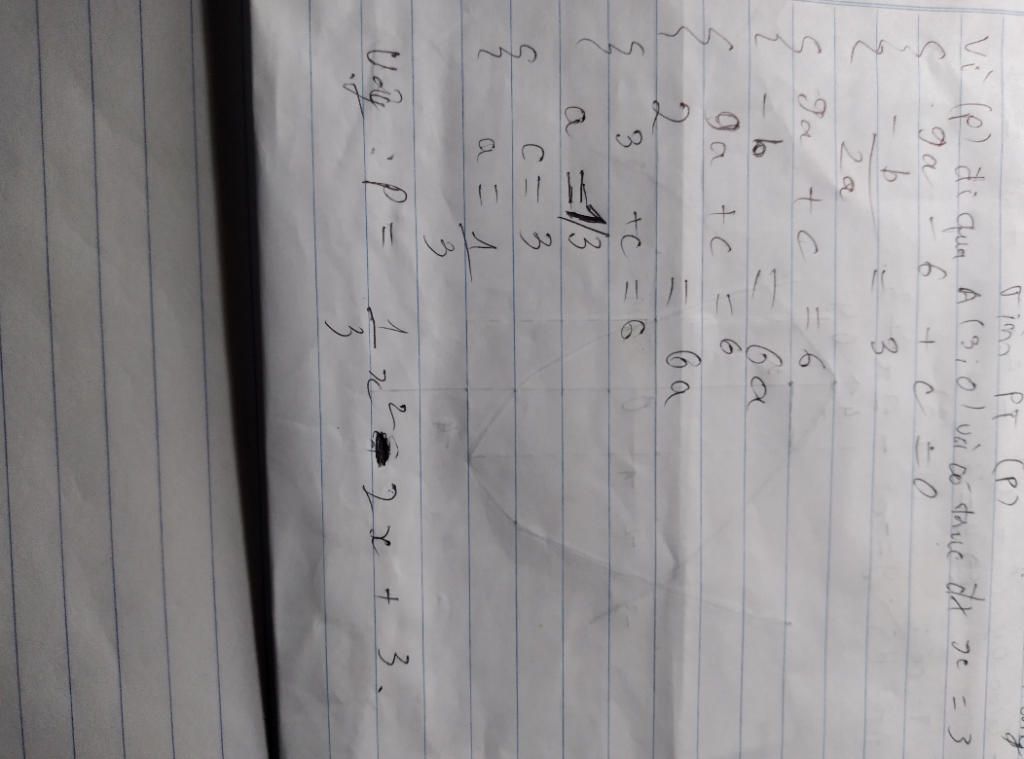 Tìm PT (P)
Vì (P) đi qua A(3;0) và có trục đx x = 3
{ 9a - 6 + c = 0
{ -b/2a = 3
{ 9a + c = 6
{ -b = 6a
{ 9a + c = 6
{ 2 = 6a
{ 3 + c = 6
a = 1/3
{ c = 3
{ a = 1/3
Vậy : P = 1/3 x² - 2x + 3.